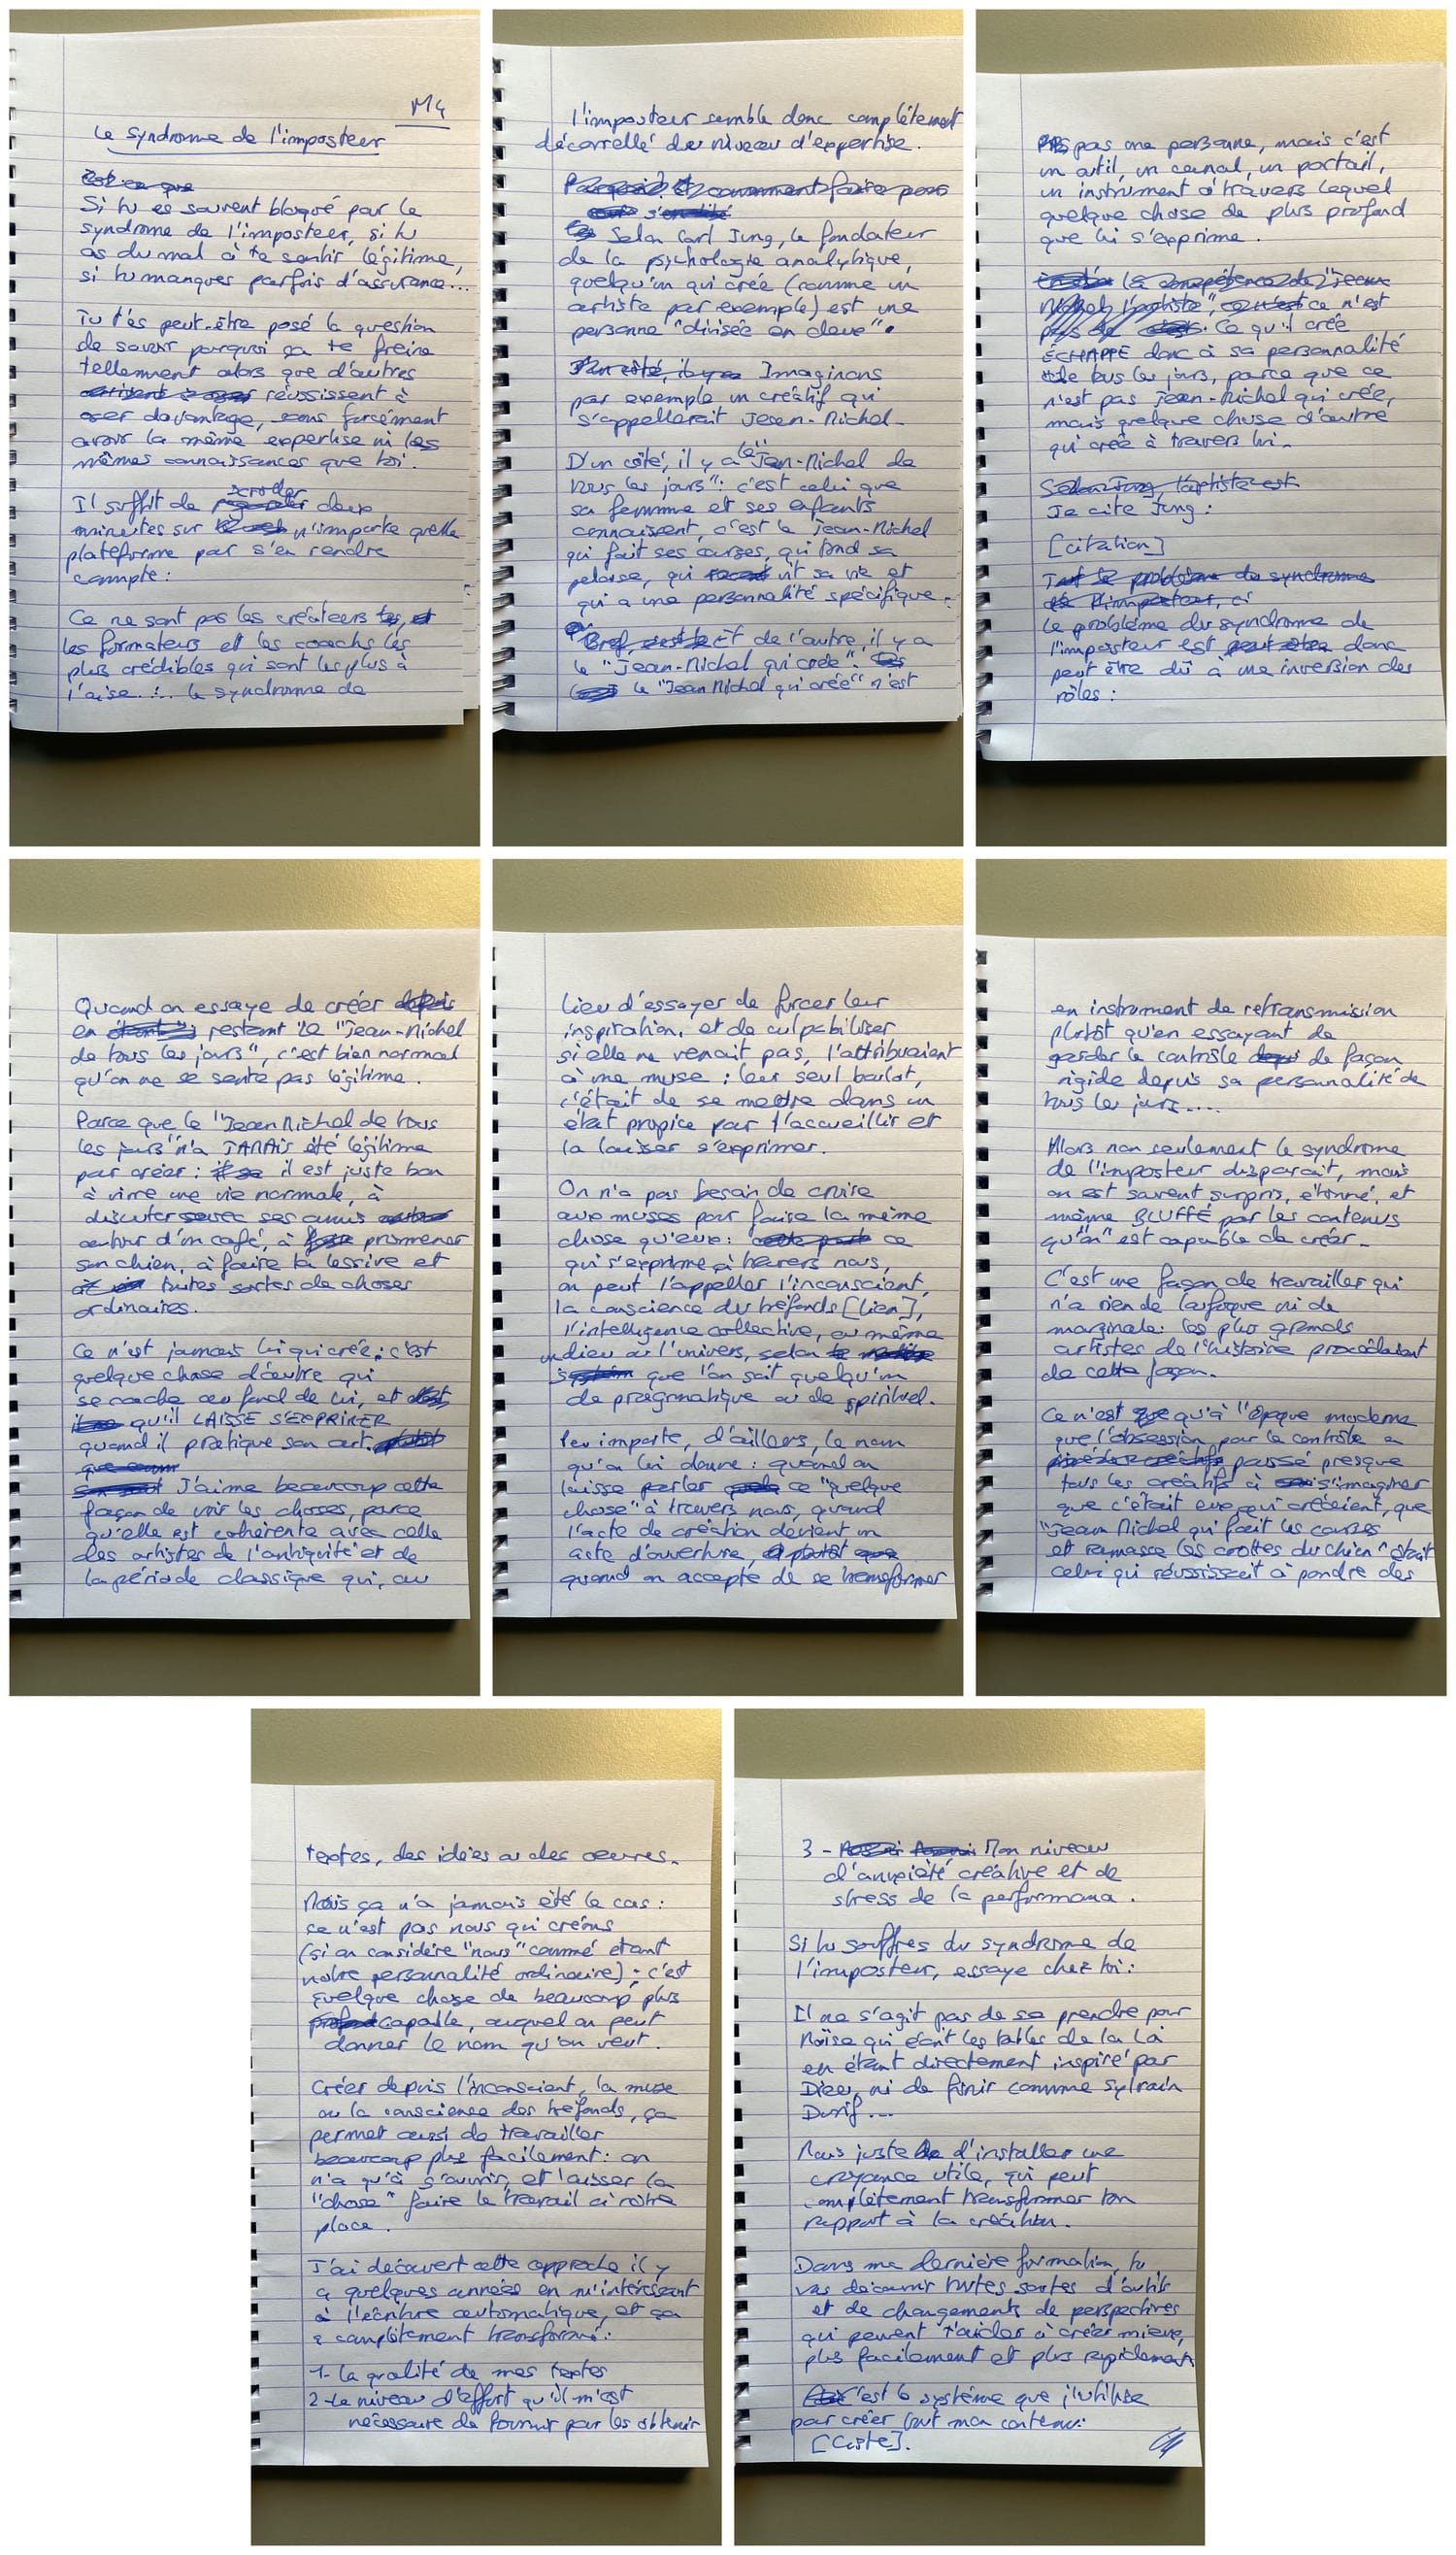 M4
Le syndrome de l'imposteur
Est-ce que
Si tu es souvent bloqué par le
syndrome de l'imposteur, si tu
as du mal à te sentir légitime,
si tu manques parfois d'assurance...
Tu t'es peut-être posé la question
de savoir pourquoi ça te freine
tellement alors que d'autres
réussissent à
oser davantage, sans forcément
avoir la même expertise ni les
mêmes connaissances que toi.
Il suffit de scroller deux
minutes sur n'importe quelle
plateforme pour s'en rendre
compte :
Ce ne sont pas les créateurs
les formateurs et les coachs les
plus crédibles qui sont les plus à
l'aise... le syndrome de
l'imposteur semble donc complètement
décorrellé du niveau d'expertise.
Selon Carl Jung, le fondateur
de la psychologie analytique,
quelqu'un qui crée (comme un
artiste par exemple) est une
personne "divisée en deux".
Imaginons
par exemple un créatif qui
s'appellerait Jean-Michel.
D'un côté, il y a le "Jean-Michel de
tous les jours" : c'est celui que
sa femme et ses enfants
connaissent, c'est le Jean-Michel
qui fait ses courses, qui tond sa
pelouse, qui vit sa vie et
qui a une personnalité spécifique.
Et de l'autre, il y a
le "Jean-Michel qui crée".
le "Jean Michel qui crée" n'est
pas une personne, mais c'est
un outil, un canal, un portail,
un instrument à travers lequel
quelque chose de plus profond
que lui s'exprime.
la compétence de "Jean
Michel l'artiste", ce n'est
Ce qu'il crée
ÉCHAPPE donc à sa personnalité
de tous les jours, parce que ce
n'est pas Jean-Michel qui crée,
mais quelque chose d'autre
qui crée à travers lui.
Selon Jung, l'artiste est
Je cite Jung :
[citation]
Tout le problème du syndrome
de l'imposteur,
Le problème du syndrome de
l'imposteur est peut-être donc
peut être dû à une inversion des
rôles :
Quand on essaye de créer depuis
en restant le "Jean-Michel
de tous les jours", c'est bien normal
qu'on ne se sente pas légitime.
Parce que le "Jean Michel de tous
les jours" n'a JAMAIS été légitime
pour créer : il est juste bon
à vivre une vie normale, à
discuter avec ses amis
autour d'un café, à promener
son chien, à faire la lessive et
toutes sortes de choses
ordinaires.
Ce n'est jamais lui qui crée : c'est
quelque chose d'autre qui
se cache au fond de lui, et
qu'il LAISSE S'EXPRIMER
quand il pratique son art.
J'aime beaucoup cette
façon de voir les choses, parce
qu'elle est cohérente avec celle
des artistes de l'antiquité et de
la période classique qui, au
lieu d'essayer de forcer leur
inspiration, et de culpabiliser
si elle ne venait pas, l'attribuaient
à une muse : leur seul boulot,
c'était de se mettre dans un
état propice pour l'accueillir et
la laisser s'exprimer.
On n'a pas besoin de croire
aux muses pour faire la même
chose qu'eux : ce
qui s'exprime à travers nous,
on peut l'appeller l'inconscient,
la conscience du tréfonds [lien],
l'intelligence collective, ou même
dieu ou l'univers, selon
que l'on soit quelqu'un
de pragmatique ou de spirituel.
Peu importe, d'ailleurs, le nom
qu'on lui donne : quand on
laisse parler ce "quelque
chose" à travers nous, quand
l'acte de création devient un
acte d'ouverture, et plutôt que
quand on accepte de se transformer
en instrument de retransmission
plutôt qu'en essayant de
garder le contrôle de façon
rigide depuis sa personnalité de
tous les jours....
Alors non seulement le syndrome
de l'imposteur disparait, mais
on est souvent surpris, étonné, et
même BLUFFÉ par les contenus
qu'"on" est capable de créer.
C'est une façon de travailler qui
n'a rien de loufoque ni de
marginale : les plus grands
artistes de l'histoire procédaient
de cette façon.
Ce n'est qu'à l'époque moderne
que l'obsession pour le contrôle a
poussé presque
tous les créatifs à s'imaginer
que c'était eux qui créaient, que
"Jean Michel qui fait les courses
et ramasse les crottes du chien" était
celui qui réussissait à pondre des
textes, des idées ou des œuvres.
Mais ça n'a jamais été le cas :
ce n'est pas nous qui créons
(si on considère "nous" comme étant
notre personnalité ordinaire) : c'est
quelque chose de beaucoup plus
profond capable, auquel on peut
donner le nom qu'on veut.
Créer depuis l'inconscient, la muse
ou la conscience des tréfonds, ça
permet aussi de travailler
beaucoup plus facilement : on
n'a qu'à s'ouvrir, et laisser la
"chose" faire le travail à notre
place.
J'ai découvert cette approche il y
a quelques années en m'intéressant
à l'écriture automatique, et ça
a complètement transformé :
1- La qualité de mes textes
2- Le niveau d'effort qu'il m'est
nécessaire de fournir pour les obtenir
3 - Mon niveau
d'anxiété créative et de
stress de la performance.
Si tu souffres du syndrome de
l'imposteur, essaye chez toi :
Il ne s'agit pas de se prendre pour
Moïse qui écrit les tables de la Loi
en étant directement inspiré par
Dieu, ni de finir comme Sylvain
Durif...
Mais juste d'installer une
croyance utile, qui peut
complètement transformer ton
rapport à la création.
Dans ma dernière formation, tu
vas découvrir toutes sortes d'outils
et de changements de perspectives
qui peuvent t'aider à créer mieux,
plus facilement et plus rapidement
C'est le système que j'utilise
pour créer tout mon contenu :
[Liste].